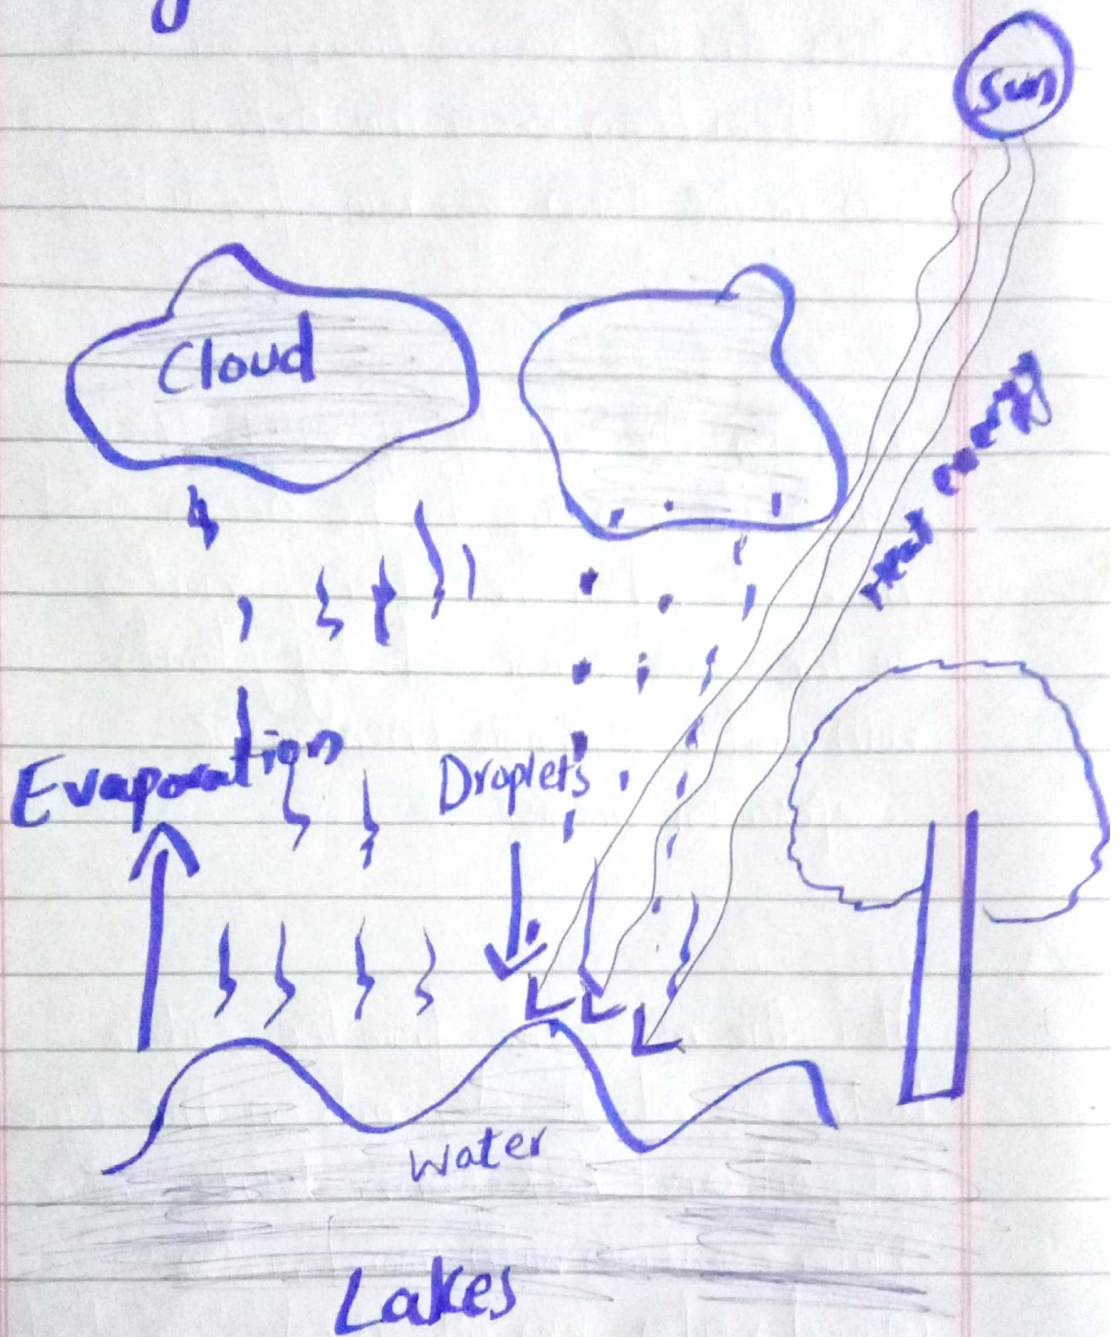 Sun
Cloud
Heat energy
Evaporation
Droplets
Water
Lakes